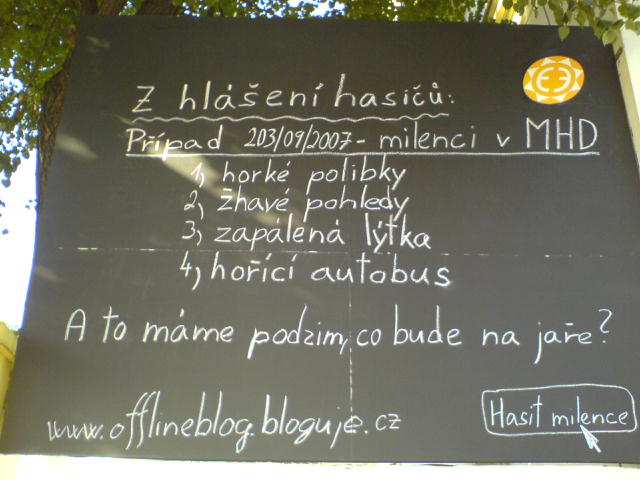 Z hlášení hasičů:
Případ 203/09/2007 - milenci v MHD
1, horké polibky
2, žhavé pohledy
3, zapálená lýtka
4, hořící autobus
A to máme podzim, co bude na jaře?
www.offlineblog.bloguje.cz
Hasit milence